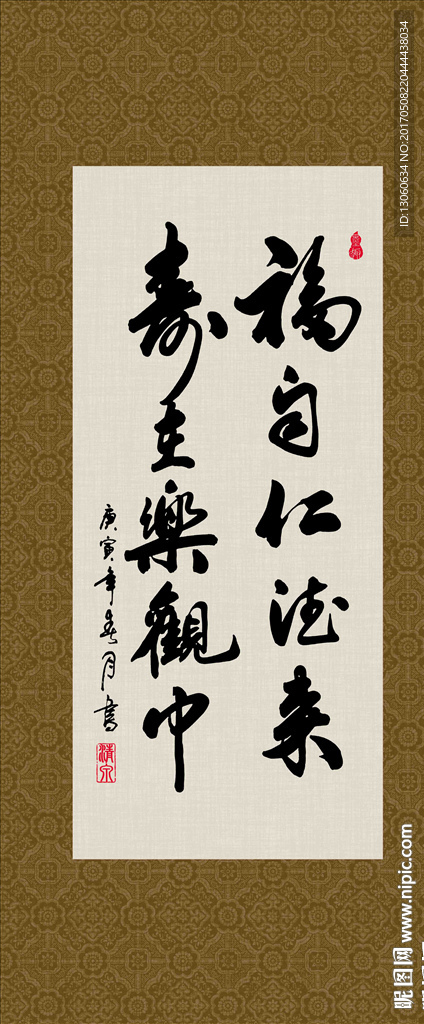 福自仁德来
寿在樂觀中
庚寅年春月書
清泉
ID:13060634 NO:20170508220444438034
昵图网 www.nipic.com